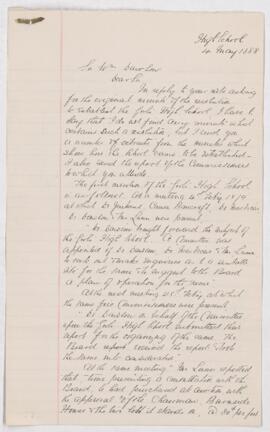 High School
4 May 1888
To Wm
Dear Sir
In reply to your note asking
for the original minute of the resolution
to establish the Girls High School, I have to
say that I do not find any minute which
contains such a resolution, but I send you
a number of extracts from the minutes which
shew how the School came to be established.
I also send the report of the Commissioners
to which you allude.
The first mention of the Girls High School
is as follows. At a meeting 4th Feby 1879
at which Dr
Dr Dawson and Mr Lunn were present
"Dr Dawson brought forward the subject of
the Girls High School. A Committee was
appointed of Dr Dawson, Dr and Mr Lunn
to make enquiries as to a suitable
site for the same & to suggest to the Board
a plan of operation for the same"
At the next meeting 21st Feby at which
the same five Commissioners were present
"Dr Dawson on behalf of the Committee
upon the Girls High School submitted their
report for the organizing of the same. The
Board report received the report & took
the same into consideration"
At the same meeting "Mr Lunn reported
that time preventing a consultation with the
Board, he had purchased at auction with
the approval of the Chairman, Barnards
House & the lot as it stands a @ 30 per foot